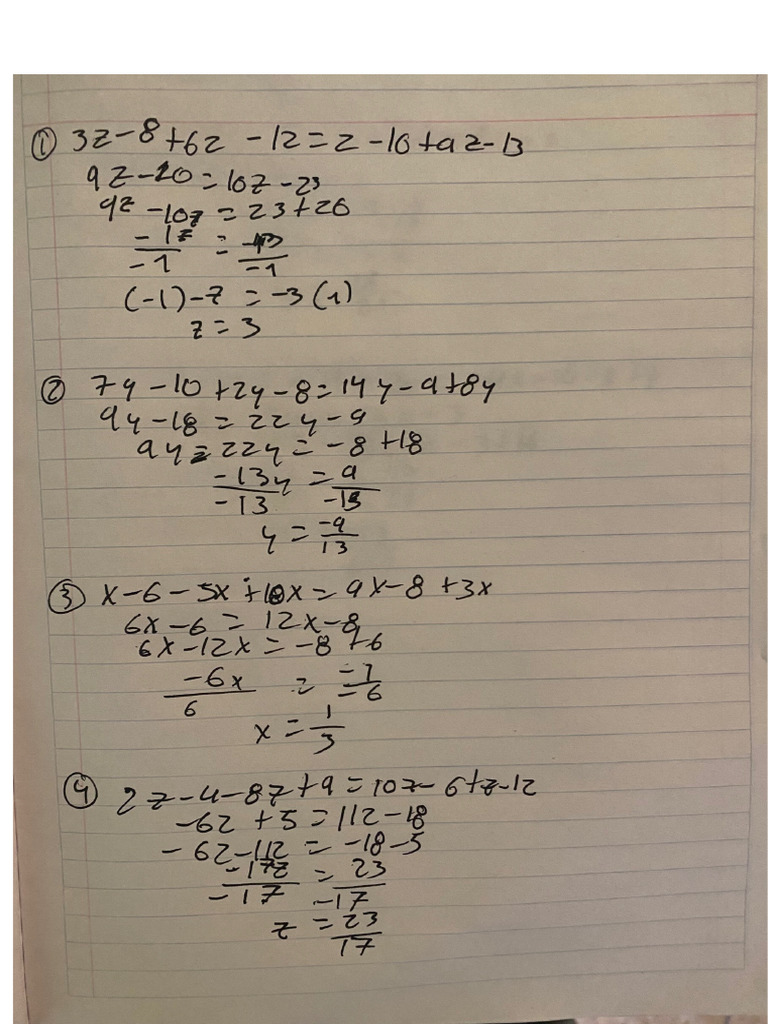 ① 3z-8+6z-12=z-10+9z-13
9z-20=10z-23
9z-10z=23+20
-1z/-1 = /-1
(-1)-z=-3(1)
z=3
② 7y-10+2y-8=14y-9+8y
9y-18=22y-9
9y=22y=-8+18
-13y/-13=9/-13
y=-9/13
③ x-6-5x+10x=9x-8+3x
6x-6=12x-8
6x-12x=-8+6
-6x/6 = /-6
x=1/3
④ 2z-4-8z+9=10z-6+z-12
-6z+5=11z-18
-6z-11z=-18-5
-17z/-17=23/-17
z=23/17